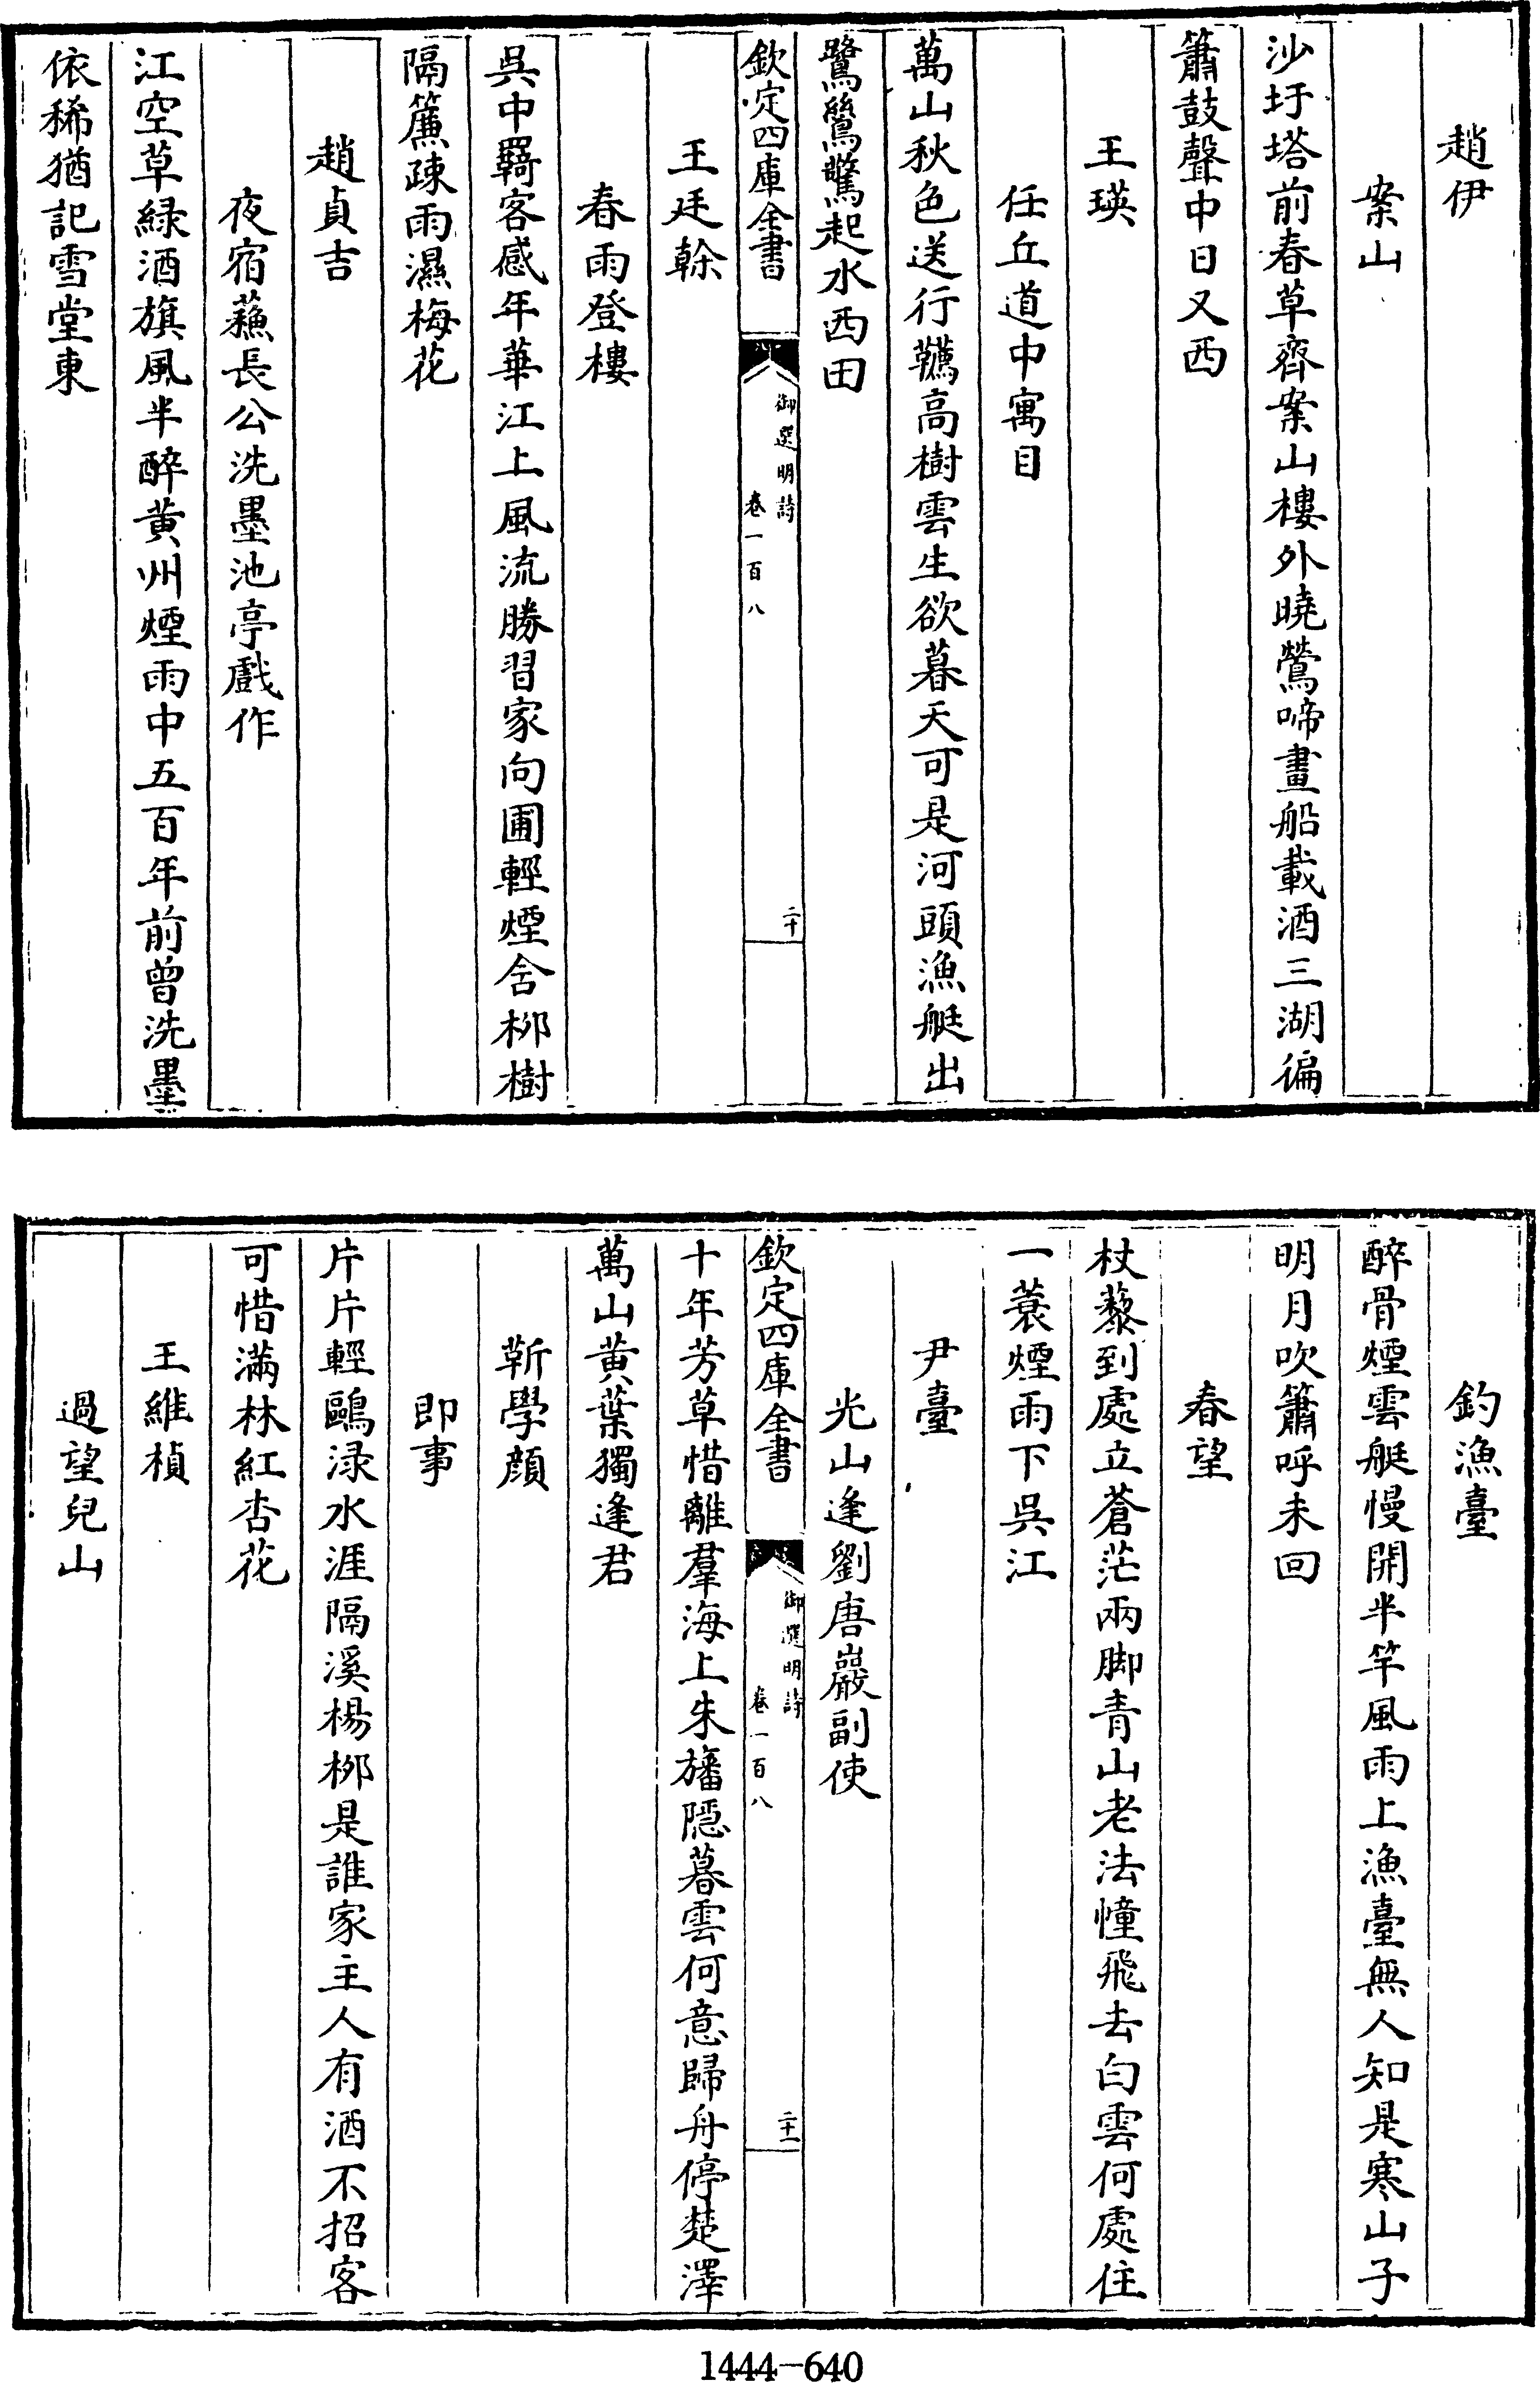 趙伊
案山
沙圩塔前春草齊案山樓外曉鶯啼畫船載酒三湖徧
簫鼓聲中日又西
王瑛
任丘道中寓目
萬山秋色送行韉高樹雲生欲暮天可是河頭漁艇出
鷺鷥驚起水西田
欽定四庫全書
御選明詩
卷一百八
二十
王廷榦
春雨登樓
吳中羇客感年華江上風流勝習家向圃輕煙舍柳樹
隔簾疎雨濕梅花
趙貞吉
夜宿蘓長公洗墨池亭戲作
江空草緑酒旗風半醉黄州煙雨中五百年前曾洗墨
依稀猶記雪堂東
釣漁臺
醉骨煙雲艇慢開半竿風雨上漁臺無人知是寒山子
明月吹簫呼未回
春望
杖藜到處立蒼茫兩脚青山老法幢飛去白雲何處住
一蓑煙雨下吳江
尹臺
光山逢劉唐巖副使
欽定四庫全書
御選明詩
卷一百八
二十一
十年芳草惜離羣海上朱旛隠暮雲何意歸舟停楚澤
萬山黄葉獨逢君
靳學顔
即事
片片輕鷗渌水涯隔溪楊柳是誰家主人有酒不招客
可惜滿林紅杏花
王維楨
過望兒山
1444-640